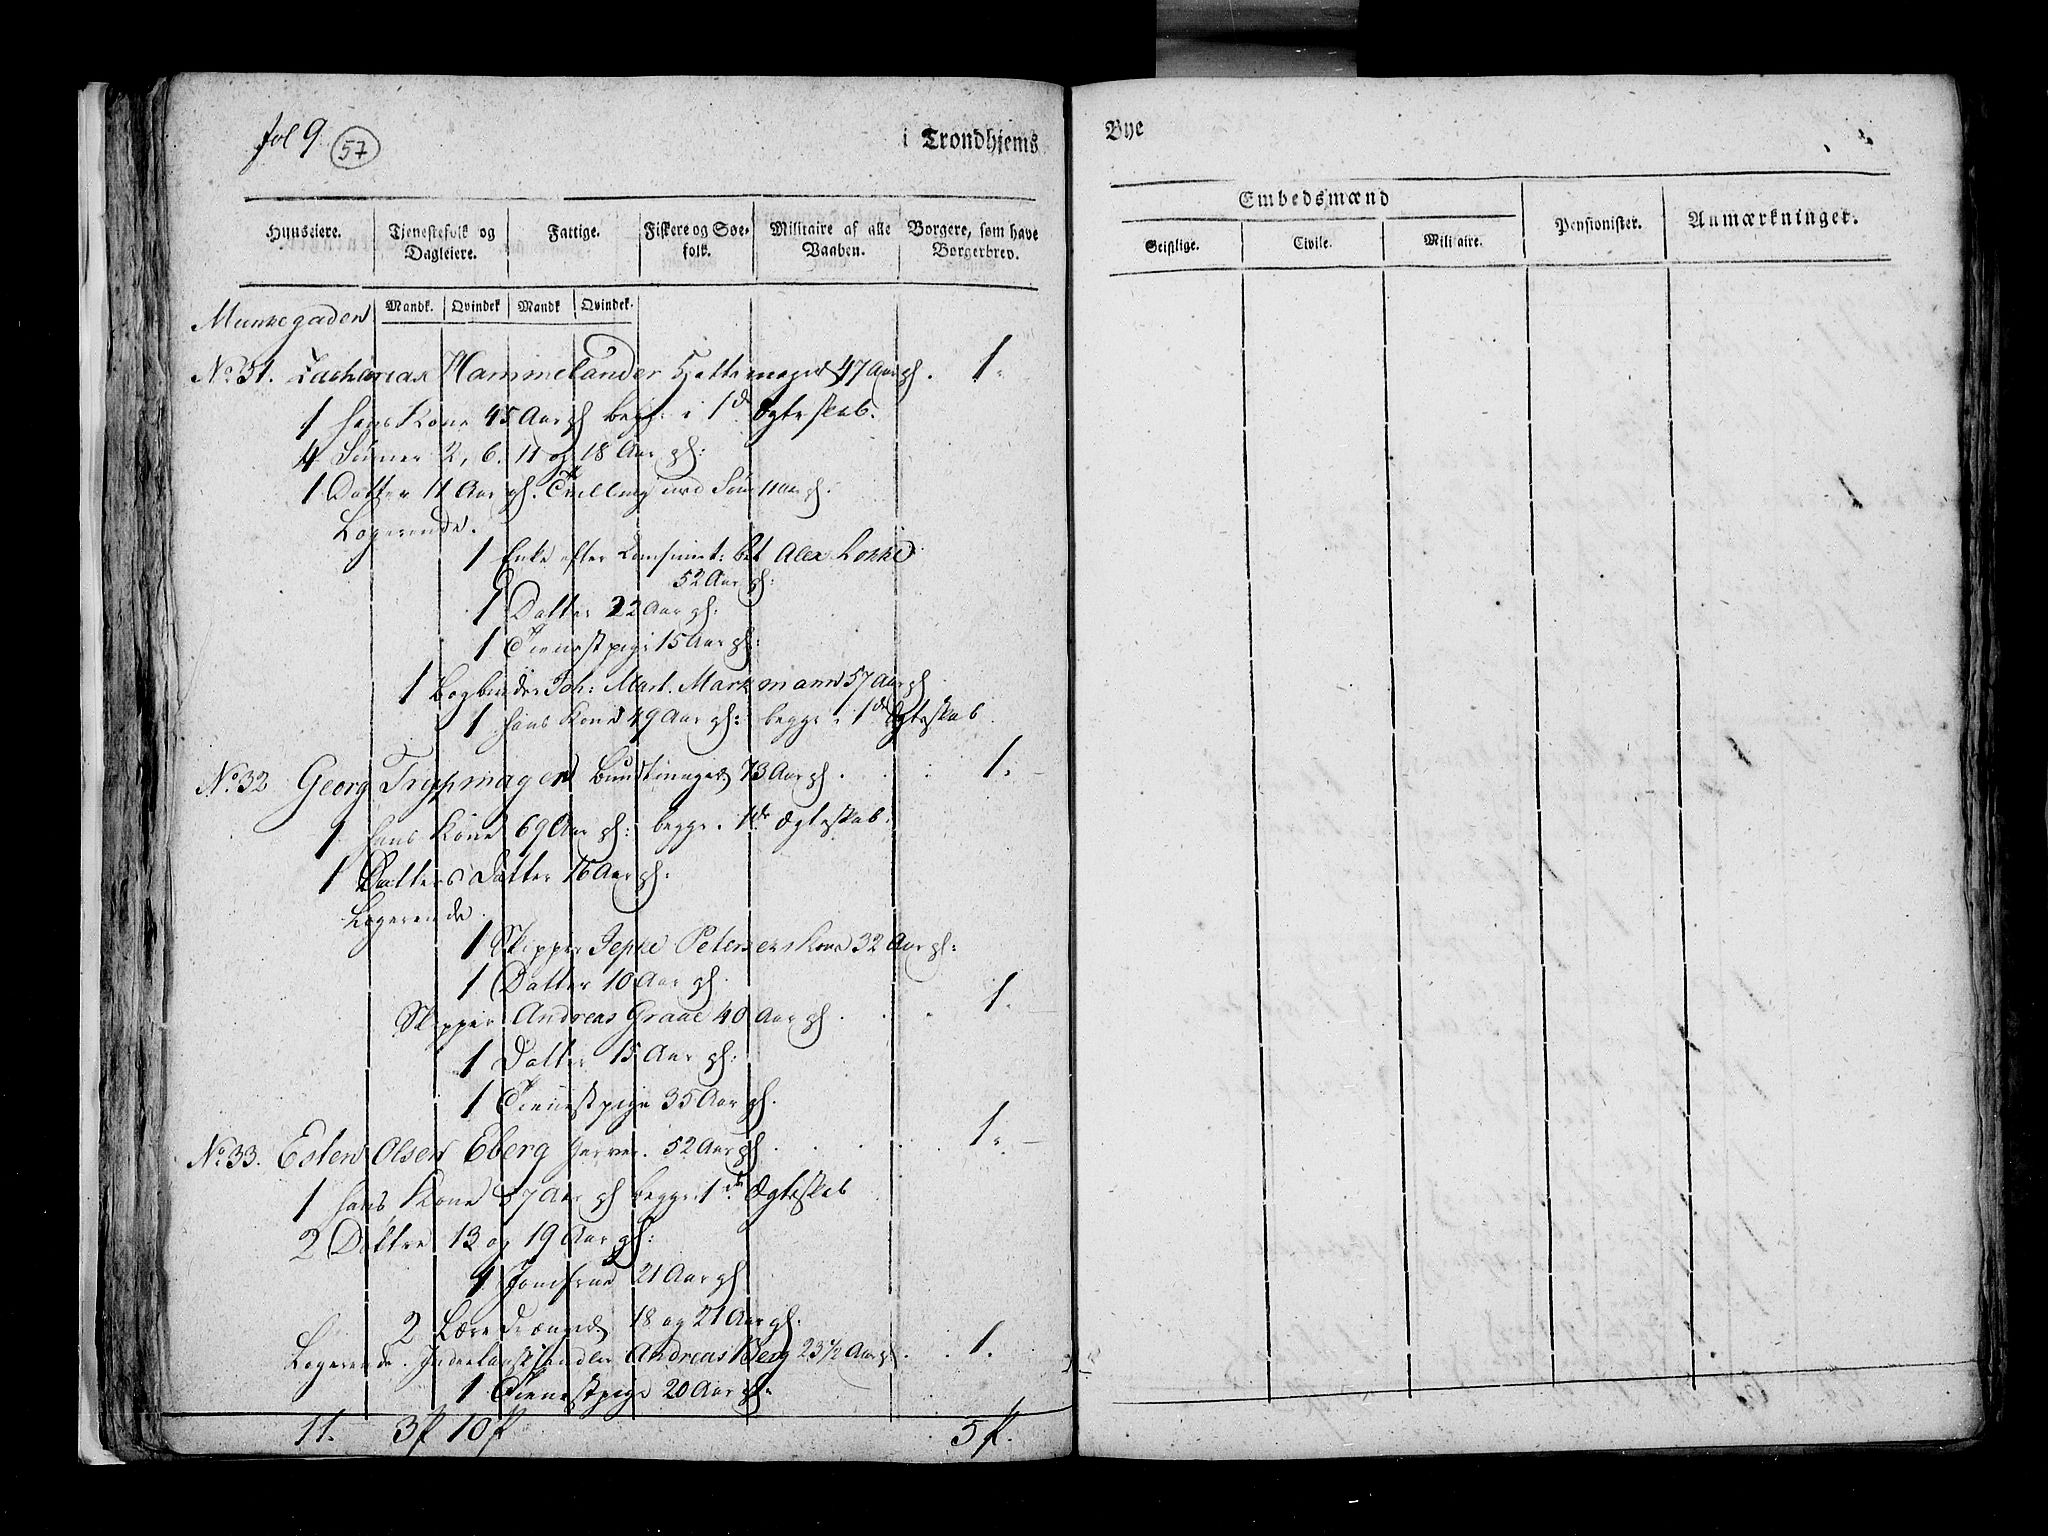 fol 9. 57
i Trondhjems
Bye
Huuseiere. Tjenestefolk og Dagleiere. Fattige. Fiskere og Søefolk. Militaire af alle Vaaben. Borgere, som have Borgerbrev.
Mandk. Qvindek Mandk Qvindek.
Embedsmænd
Geistlige. Civile. Militaire. Pensionister. Anmærkninger.
Munkegaden
No 31. Zacharias Hammelander Hattemager 47 Aar gl. 1.
1 hans Kone 45 Aar gl begge i 1de Ægteskab.
4 Sønner 2, 6. 11 og 18 Aar gl:
1 Datter 11 Aar gl. Tvilling med Søn 11 Aar gl.
Logerende.
1 Enke efter Consumt: bet Alex Lokke
52 Aar gl:
1 Datter 22 Aar gl:
1 Tienestpige 15 Aar gl:
1 Bogbinder Joh: Mart. Markmann 57 Aar gl
1 hans Kone 49 Aar gl: begge i 1de Ægteskab
No. 32 Georg Trypmager Buntmager 73 Aar gl. 1.
1 hans Kone 69 Aar gl: begge i 1de Ægteskab.
1 Datters Datter 16 Aar gl:
Logerende.
1 Skipper Jepke Petersens Kone 32 Aar gl:
1 Datter 10 Aar gl.
Skipper Andreas Graae 40 Aar gl. 1.
1 Datter 15 Aar gl:
1 Tienestpige 35 Aar gl.
No. 33. Esten Olsen Eberg Garver. 52 Aar gl. 1.
1 hans Kone 57 Aar gl begge i 1de Ægteskab
2 Døttre 13 og 19 Aar gl:
1 Jomfrue 21 Aar gl
2 Læredrænge 18 og 21 Aar gl.
Logerende. Inderlandsk handler Andreas Berg 23 1/2 Aar gl. 1.
1 Tienestpige 20 Aar gl:
11. 3 10 5